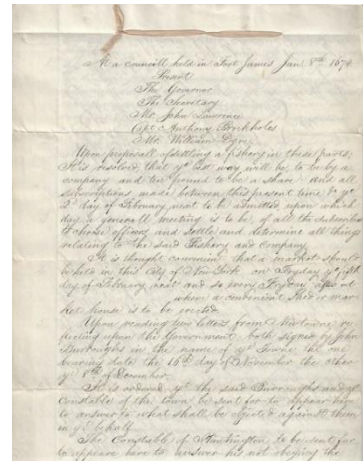 At a councill held in Fort James Jan 8th 1674
Present
The Governor
The Secretary
Mr John Lawrence
Capt Anthony Brockholes
Mr William Dyre
Upon proposall of settling a fishery in these parts
It is resolved that ye best way will be, to be by a
company and ten pounds be a share and all
subscriptions made between this present time & ye
2d day of February next to be admitted upon which
day a generall meeting is to be, of all the subscribers
to choose officers and settle and determine all things
relating to the said Fishery and Company
It is thought convenient that a market should
be held in this City of New York on Fryday ye
day of February next and so every Fryday after at
where a convenient Shed or mar
ket house is to be erected
Upon reading two letters from Newtowne re
flecting upon the Government both signed by John
Burroughs in the name of ye Towne, the one
bearing date the 16th day of November the other
ye 8th of December,
It is ordered yt the said Burroughs and ye
Constable of the town be sent for to appear here
to answer to what shall be objected against them
in ye behalf
The Constable of Huntington to be sent for
to appeare here to answer his not obeying the